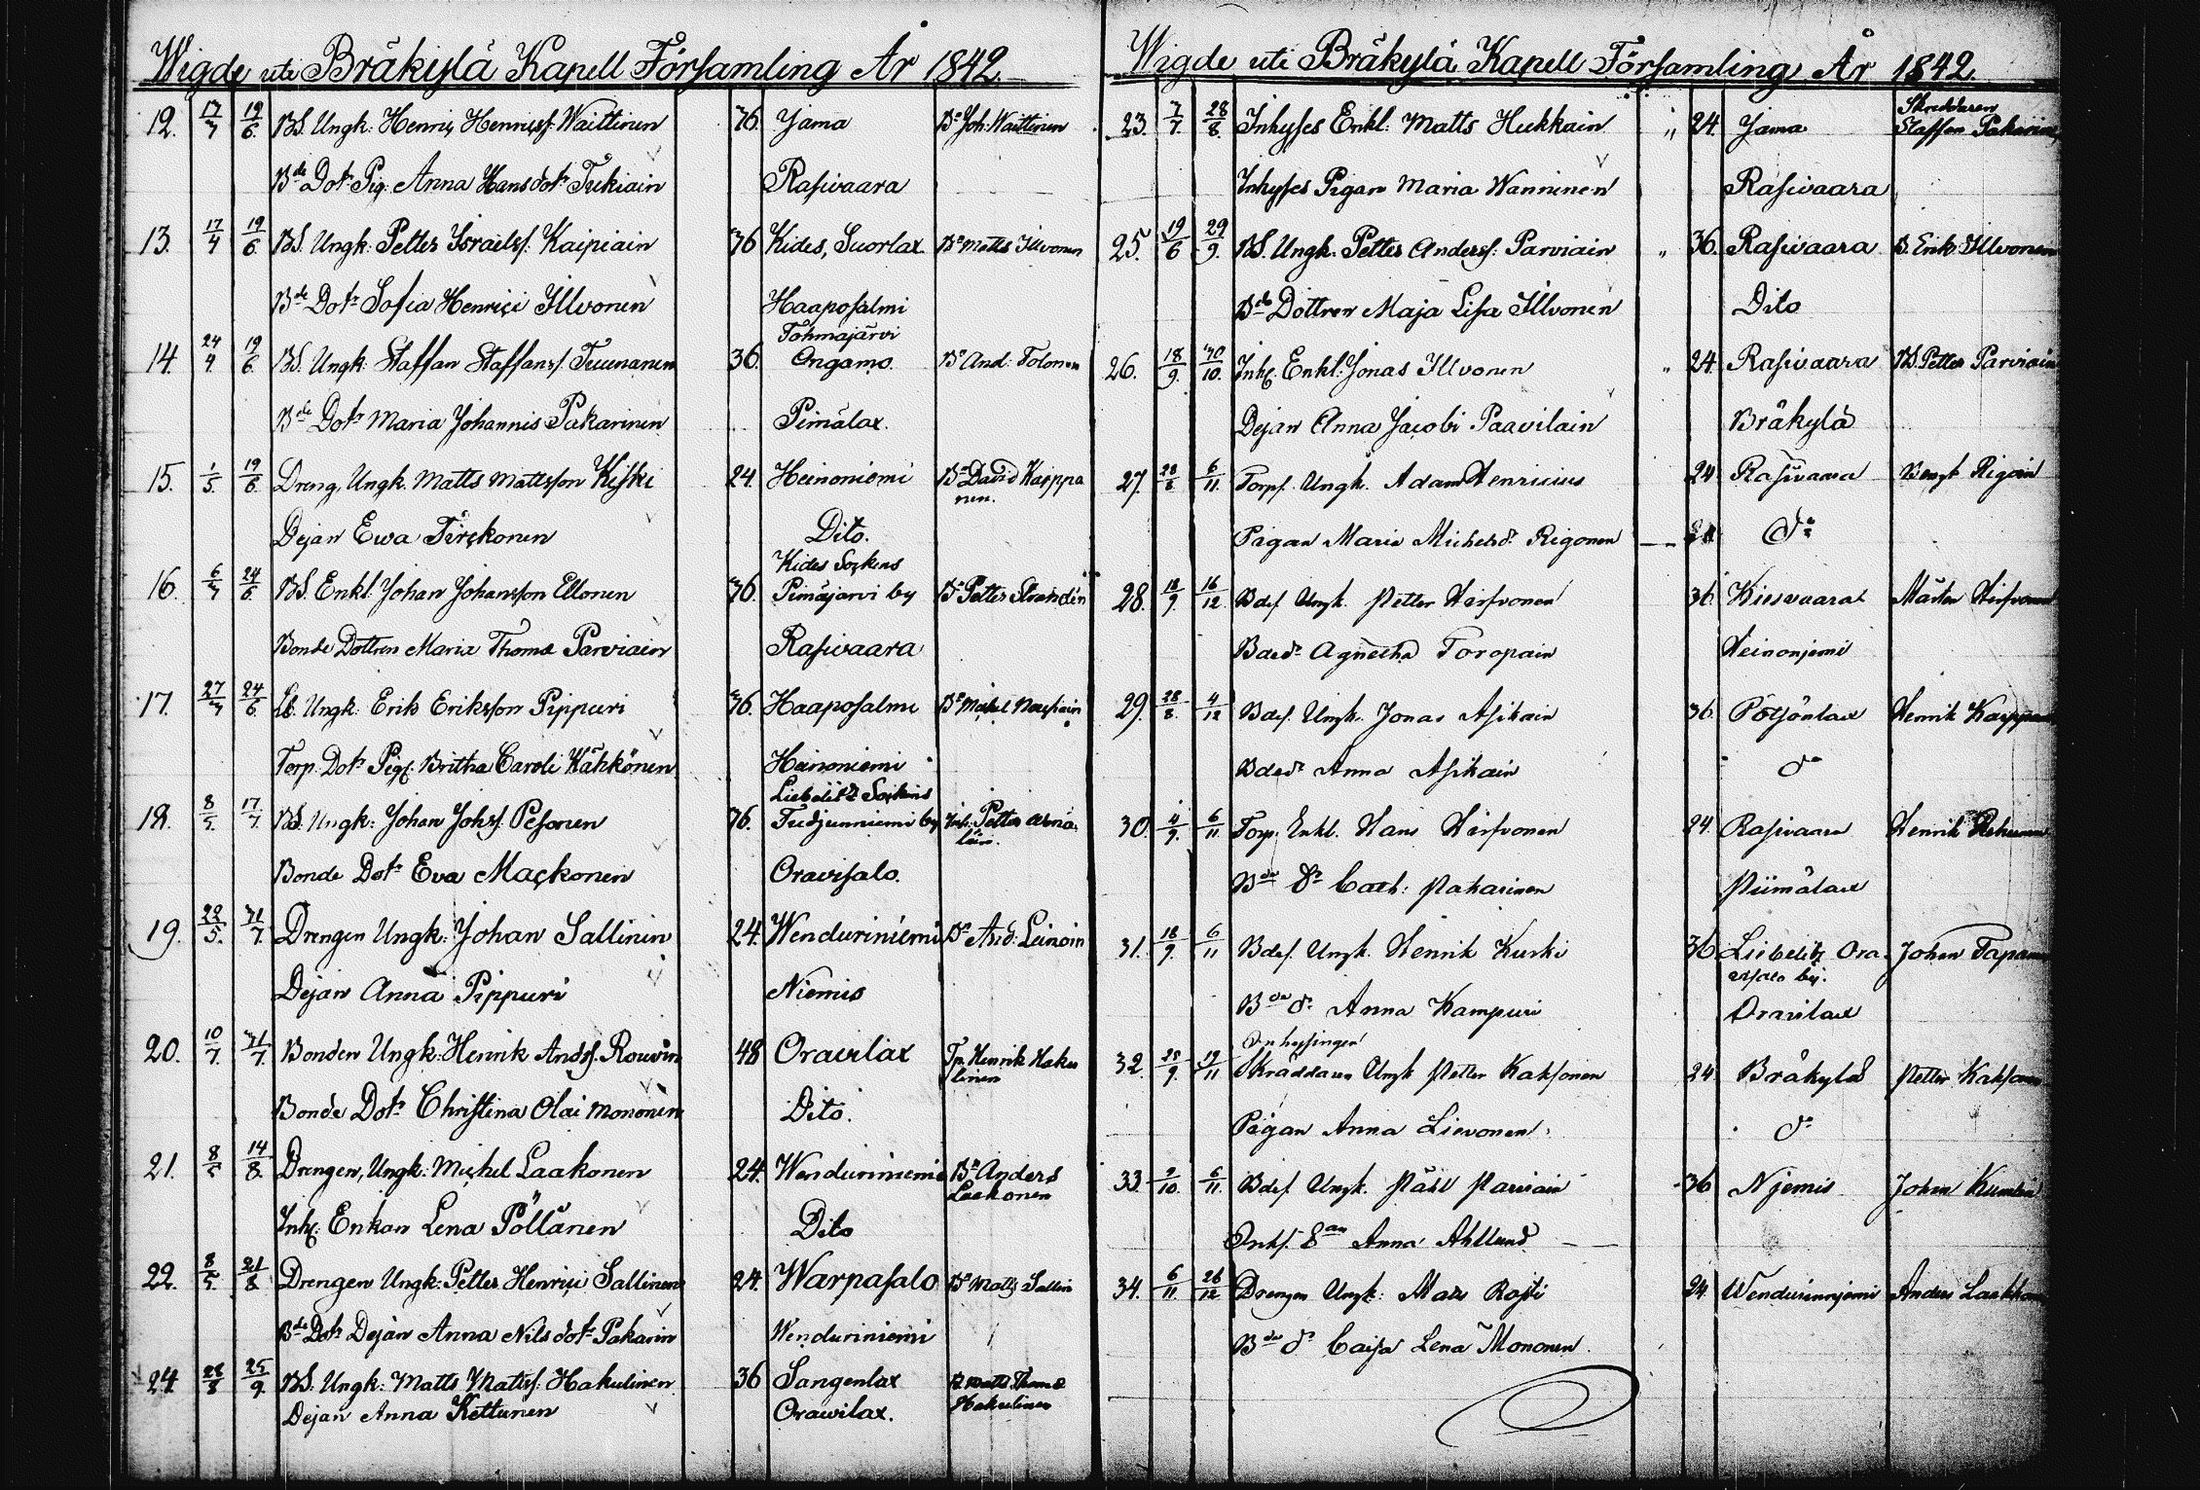 Wigde uti Bräkylä Kapell Församling År 1842.
12. 17/4 19/6 BS. Ungk: Henric Henricsf. Waittinen 36 Jama Bn Joh: Waittinen
Bde Dotr Pig: Anna Hansdotr Tukiain Rasivaara
13. 17/4 19/6 BS. Ungk: Petter Israelsf. Kaipiain 36 Kides, Suorlax Bn Matts Illvonen
Bde Dotr Sofia Henrici Illvonen Haaposalmi
14. 24/4 19/6 BS. Ungk: Staffan Staffansf. Tuunanen 36. Tohmajärvi Ongamo. Bn And. Tolonen
Bde Dotr Maria Johannis Pakarinen Pimälax.
15. 1/5. 19/6. Dreng, Ungk. Matts Mattsson Kiski 24. Heinoniemi Bn David Kaippa
nen.
Dejan Ewa Tirckonen Dito.
16. 6/4 24/6 BS. Enkl. Johan Johansson Ellonen 36. Kides Sockens Pimäjärvi by Bn Petter
Bonde Dottren Maria Thomæ Parviain Rasivaara
17. 27/4 24/6. Ungk: Erik Eriksson Pippuri 36. Haaposalmi Bn Mickel
Torp. Dotr Pig. Britha Caroli Kähkönen Heinoniemi
18. 8/5. 17/7. BS. Ungk: Johan Johsf. Pesonen 36. Liebelitz Sockens by Petter
Bonde Dotr Eva Mackonen Oravisalo.
19. 22/5. 31/7. Drengen Ungk: Johan Sallinin 24. Wenduriniemi Bn And: Leinoin
Dejan Anna Pippuri Niemis
20. 10/7. 31/7. Bonden Ungk: Henrik Andsf. Rouvin 48 Oravilax Tp. Henrik Haku
linen
Bonde Dotr Christina Olai Mononen Dito.
21. 8/5 14/8. Drengen, Ungk: Michel Laakonen 24. Wenduriniemi Bn Anders
Laakonen
Inh. Enkan Lena Pöllänen Dito
22. 8/5. 21/8 Drengen Ungk: Petter Henrici Sallinen 24. Warpasalo Bn Matts Sallin
Bde Dotr Dejan Anna Nils dotr Pakarin Wenduriniemi
24. 28/8 25/9. BS. Ungk: Matts Matsf. Hakulinen 36 Sangenlax Bn Matts Thomæ
Hakulinen
Dejan Anna Kettunen Oravilax.
Wigde uti Bräkylä Kapell Församling År 1842.
23. 7/7. 28/8. Inhyses Enkl: Matts Hukkain " 24. Jama Skreddaren
Staffan Pakarinen
Inhyses Pigan Maria Wanninen Rasivaara
25. 19/6 29/9. BS. Ungk: Petter Andersf: Parviain " 36. Rasivaara B. Erik Illvonen
Bde Dottren Maja Lisa Illvonen Dito
26. 18/9. 30/10. Inh. Enkl: Jonas Illvonen " 24. Rasivaara BS. Petter Parviain
Dejan Anna Jacobi Paavilain Bräkylä
27. 28/8 6/11. Torps. Ungk. Adam Henricius 24 Rasivaara Bengt Rigoin
Pigan Maria Michelsdr Rigonen do
28. 18/9. 16/12. Bdes. Ungk. Petter Hirfvonen 36 Kiesvaara Mårten Hirfvonen
Bdedr Agnetha Toropain Heinonjemi
29. 28/8. 4/12 Bdes. Ungk. Jonas Asikain 36 Potsönlax Henrik
Bdedr Anna Asikain do
30. 4/9. 6/11 Torp. Enkl. Hans Hirfvonen 24. Rasivaara Henrik
Bde dr Cath: Pakarinen Piimälax
31. 18/9. 6/11 Bdes. Ungk. Henrik Kurki 36 Liebelitz Ora
visalo by. Johan
Bde dr Anna Kampuri Oravilax
32. 25/9. 19/11 Inhysingen
Skräddaren Ungk Petter Kaksonen 24 Bråkylä Petter Kaksonen
Pigan Anna Lievonen do
33. 2/10. 6/11. Bdes. Ungk. Påhl Parviain 36 Njemis Johan
Inhs. Anna Ahllund
34. 6/11. 26/12 Drengen Ungk: Mats Rosti 24 Wendurinnjemi Anders Laakkonen
Bde dr Caisa Lena Mononen.